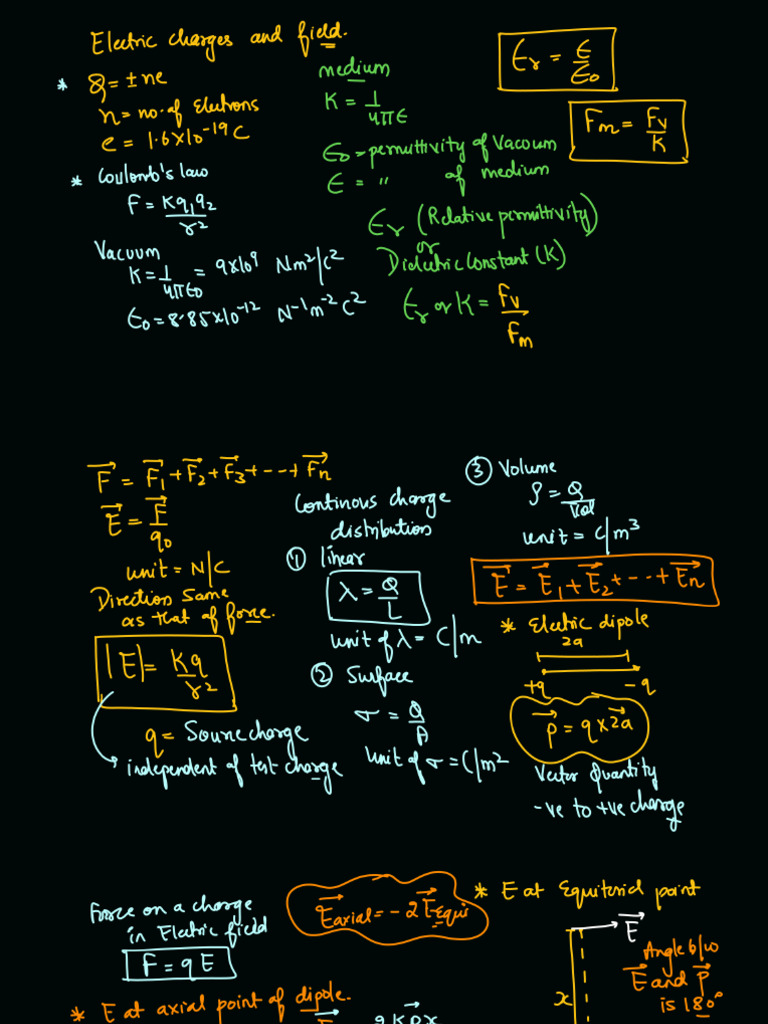 Electric charges and field.
* Q = ± ne
n = no. of electrons
e = 1.6×10⁻¹⁹ C
* Coulomb's law
F = Kq₁q₂/r²
Vacuum
K = 1/4πϵ₀ = 9×10⁹ Nm²/C²
ϵ₀ = 8.85×10⁻¹² N⁻¹m⁻²C²
medium
K = 1/4πϵ
ϵ₀ = permittivity of Vacuum
ϵ = " of medium
ϵᵣ (Relative permittivity)
or
Dielectric Constant (K)
ϵᵣ or K = Fᵥ/Fₘ
ϵᵣ = ϵ/ϵ₀
Fₘ = Fᵥ/K
F⃗ = F⃗₁ + F⃗₂ + F⃗₃ + --- + F⃗n
E⃗ = F⃗/q₀
unit = N/C
Direction same
as that of force.
|E| = Kq/r²
q = Source charge
independent of test charge
Continous charge
distribution
① linear
λ = Q/L
unit of λ = C/m
② Surface
σ = Q/A
Unit of σ = C/m²
③ Volume
ρ = Q/Vol
unit = C/m³
E⃗ = E⃗₁ + E⃗₂ + --- + E⃗n
* Electric dipole
2a
+q -q
p⃗ = q × 2a⃗
Vector Quantity
-ve to +ve charge
Force on a charge
in Electric field
F = qE
E⃗axial = -2E⃗equi
* E at axial point of dipole.
* E at Equitorial point
E⃗
x
Angle b/w
E⃗ and P⃗
is 180°